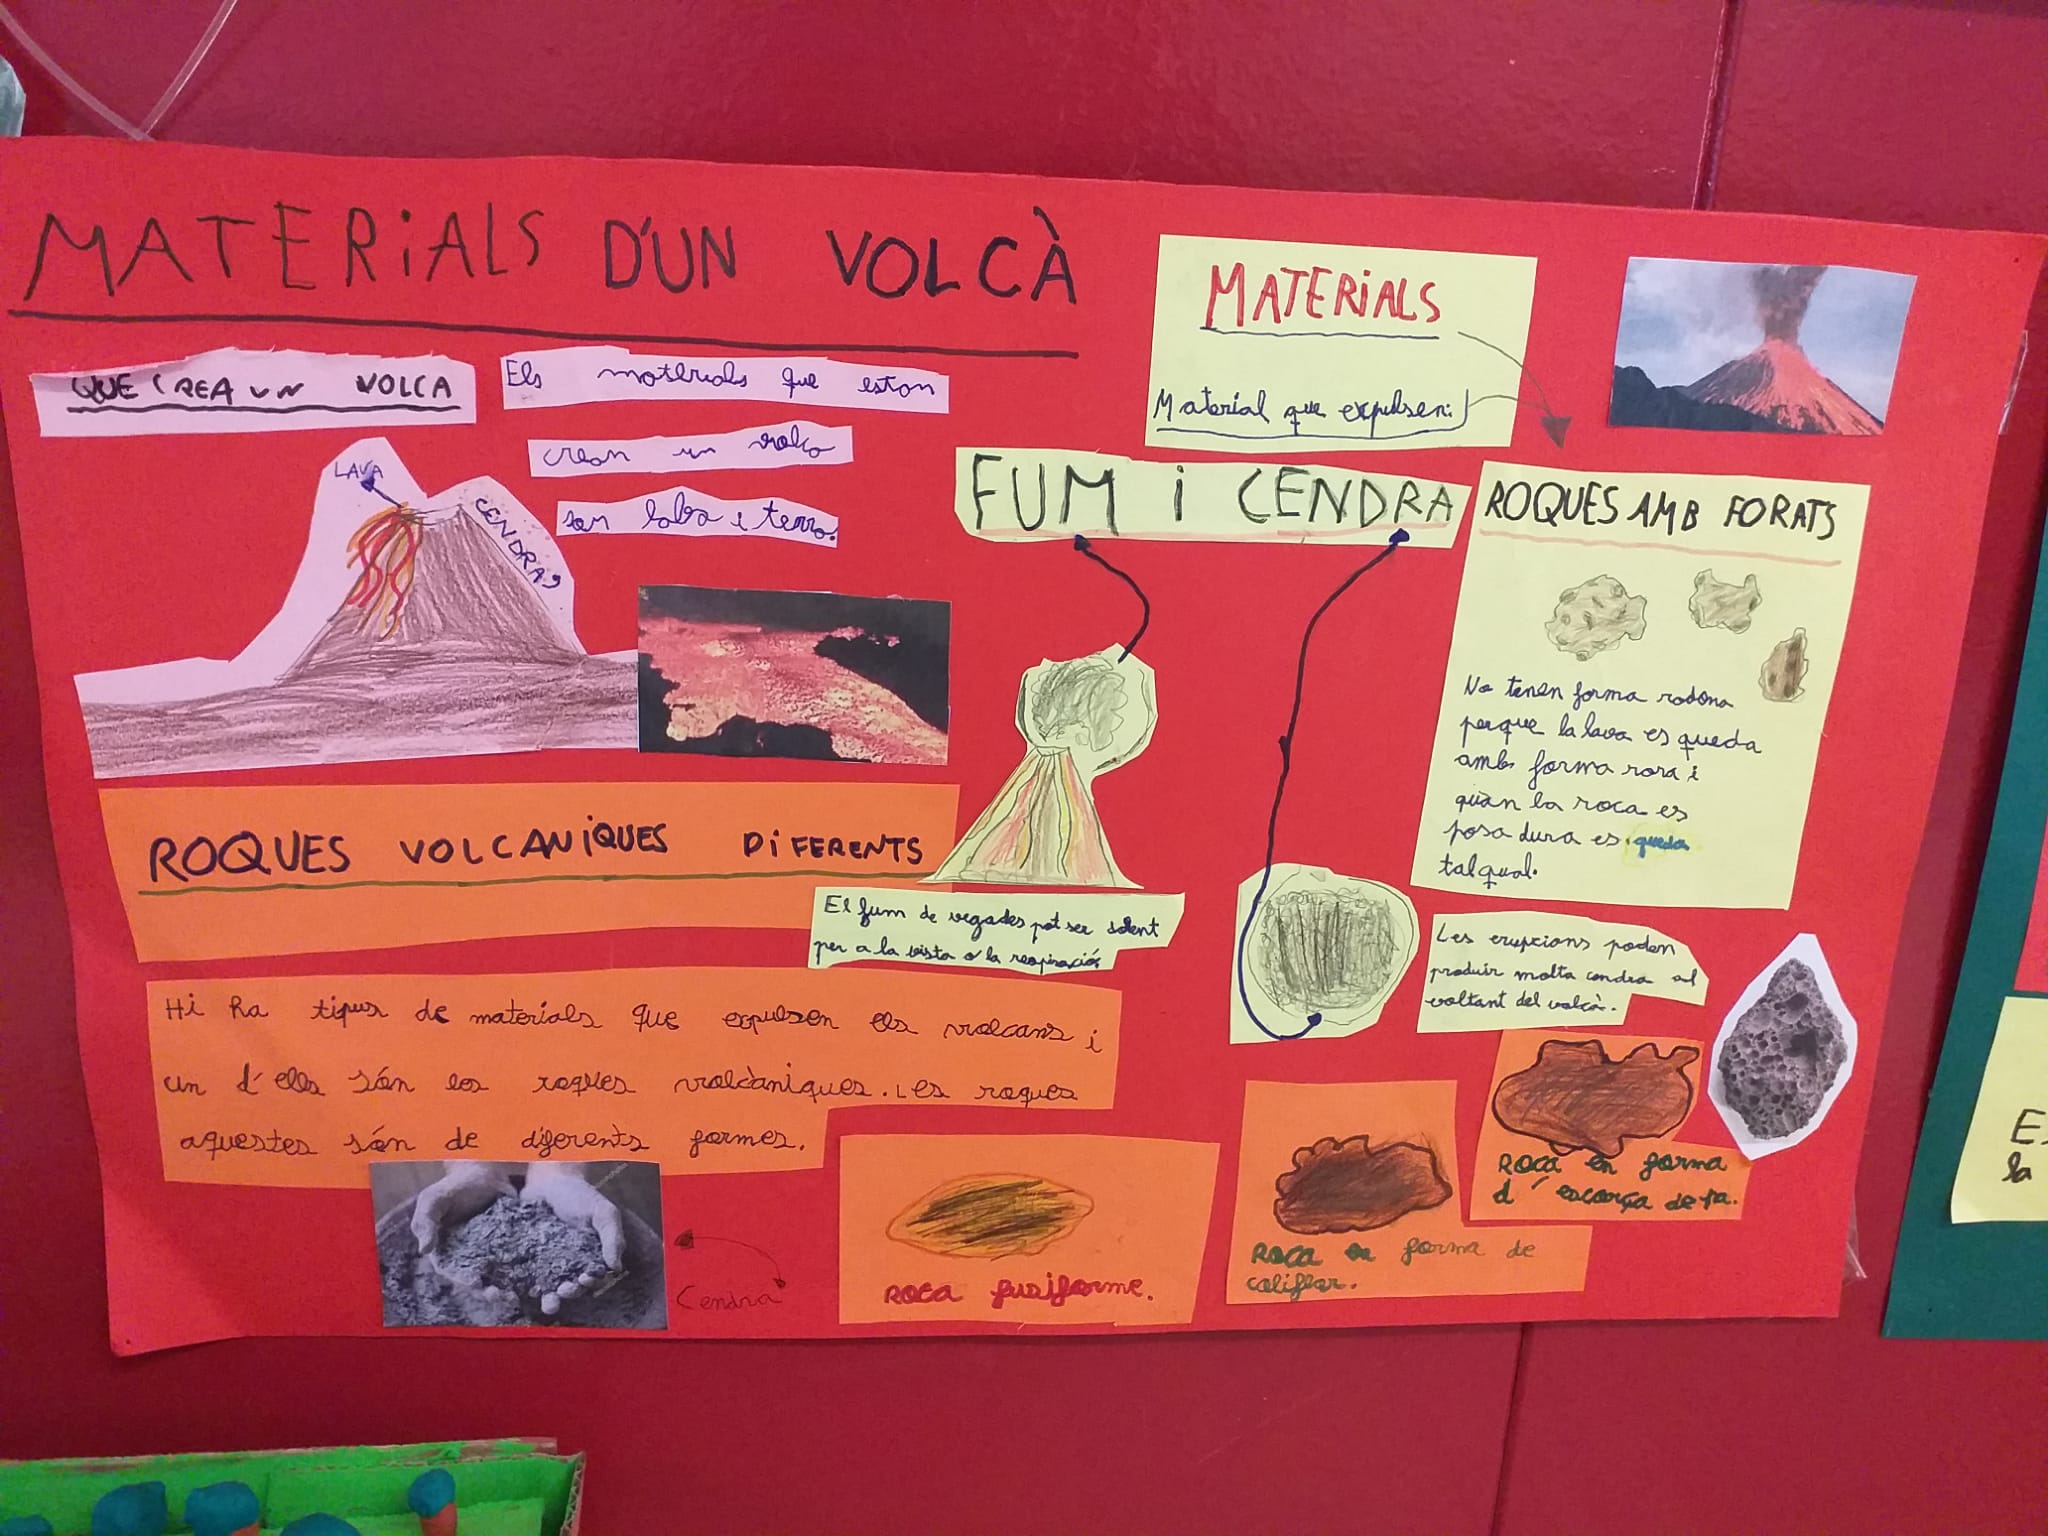 MATERiALS D'UN VOLCÀ
QUE CREA UN VOLCA
Els materials que estan
crean un volca
son laba i terra.
LAVA
CENDRA
MATERiALS
Material que expulsen:
FUM i CENDRA
ROQUES AMB FORATS
No tenen forma rodona
perque la lava es queda
amb forma rara i
quàn la roca es
posa dura es queda
tal qual.
El fum de vegades pot ser dolent
per a la vista o la respiració
Les erupcions poden
produir molta cendra al
voltant del volcà.
ROQUES VOLCANiQUES DiFERENTS
Hi ha tipus de materials que expulsen els volcans i
un d'ells són les roques volcàniques. Les roques
aquestes són de diferents formes.
Cendra
ROCA fusiforme.
ROCA en forma de
coliflor.
ROCA en forma
d'escorça de pa.
la